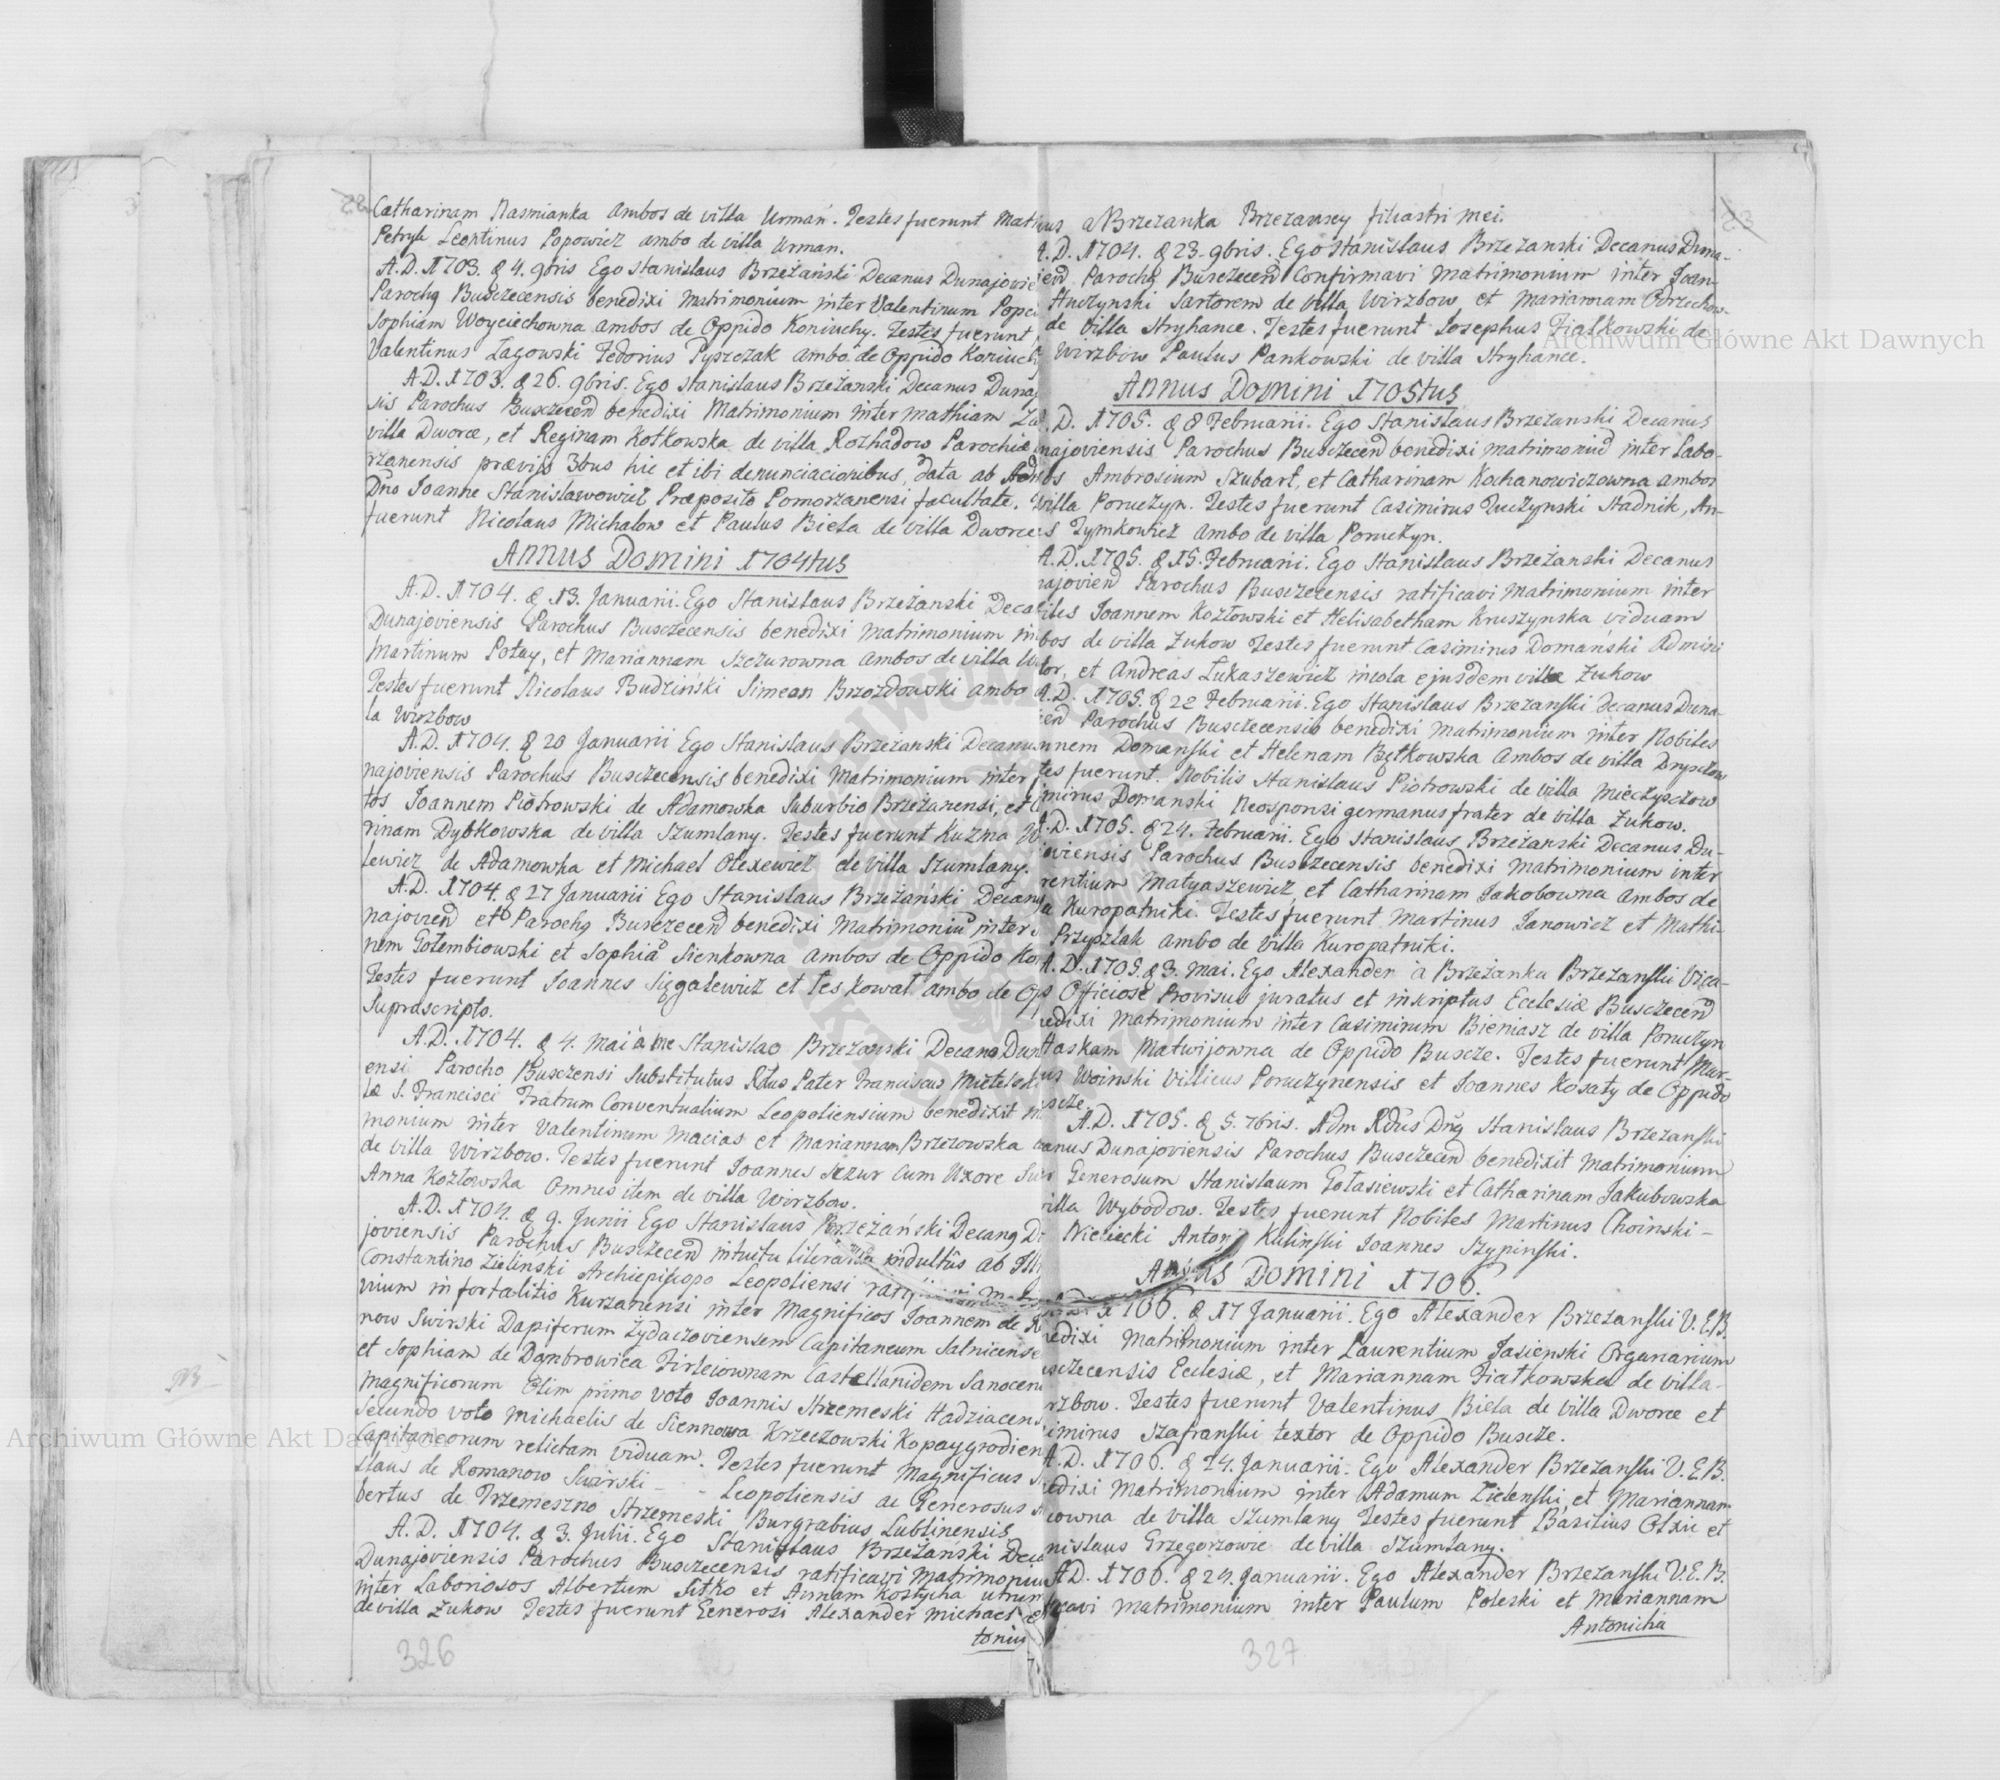 Catharinam Nasmianka ambos de villa Urmań. Testes fuerunt Math
Petryk Leontinus Popowicz ambo de villa Urman.
A.D. 1703. d 4. 9bris Ego Stanislaus Brzeżański Decanus Dunajovie
Parochq Busczecensis benedixi Matrimonium inter Valentinum Pope
Sophiam Woyciechowna ambos de Oppido Koniuchy. Testes fuerunt
Valentinus Zagowski Fedorius Pyszczak ambo de Oppido Koniuch
A.D. 1703. d 26. 9bris. Ego Stanislaus Brzeżanski Decanus Dunaj
sis Parochus Busczecen benedixi Matrimonium inter Mathiam Za
villa Dworce, et Reginam Kotkowska de villa Rozhadow Parochiæ
rzanensis præviis 3bus hic et ibi denunciacionibus, data ab Adm
Dño Joanne Stanislawowicz Præposito Pomorzanensi facultate.
fuerunt Nicolaus Michalow et Paulus Biela de villa Dworce
Annus Domini 1704tus
A.D. 1704. d 13. Januarii. Ego Stanislaus Brzeżanski Deca
Dunajoviensis Parochus Busczecensis benedixi Matrimonium in
Martinum Połay, et Mariannam Szczurowna ambos de villa W
Testes fuerunt Nicolaus Budziński Simeon Brzozdowski ambo
la Wirzbow
A.D. 1704. d 20 Januarii Ego Stanislaus Brzeżanski Decanus
najoviensis Parochus Busczecensis benedixi Matrimonium inter
tos Joannem Piotrowski de Adamowka Suburbio Brzeżanensi, et
rinam Dybkowska de villa Szumlany. Testes fuerunt Kuzma
lewicz de Adamowka et Michael Olexewicz de villa Szumlany.
A.D. 1704. d 27 Januarii Ego Stanislaus Brzeżański Decanq
najovien et Parochq Busczecen benedixi Matrimoniu inter
nem Gołembiowski et Sophia Sienkowna ambos de Oppido Kon
Testes fuerunt Joannes Sięgalewicz et Les Kowal ambo de Op
Suprascripto.
A.D. 1704. d 4. Mai à me Stanislao Brzeżanski Decano Dun
ensi Parocho Busczensi Substitutus Rdus Pater Franciscus Mietelski
læ S. Francisci Fratrum Conventualium Leopoliensium benedixit
monium inter Valentinum Macias et Mariannam Brzezowska
de villa Wirzbow. Testes fuerunt Joannes Sczur cum Uxore Su
Anna Kozłowska Omnes item de villa Wirzbow.
A.D. 1704. d 9. Junii Ego Stanislaus Brzeżański Decanq D
joviensis Parochus Busczecen intuitu literarum indultûs ab Ill
Constantino Zielinski Archiepiscopo Leopoliensi
nium in fortalitio Kurzanensi inter Magnificos Joannem de R
now Swirski Dapiferum Zydaczoviensem Capitaneum Salnicense
et Sophiam de Dąmbrowica Firleiownam Castellanidem Sanocen
Magnificorum Olim primo voto Joannis Strzemeski Hadziacens
secundo voto Michaelis de Siennowa Krzeczowski Kopaygrodien
Capitaneorum relictam viduam. Testes fuerunt Magnificus
slaus de Romanow Swirski - - Leopoliensis ac Generosus
bertus de Trzemeszno Strzemeski Burgrabius Lublinensis
A.D. 1704. d 3. Julii. Ego Stanislaus Brzeżański Deca
Dunajoviensis Parochus Busczecensis ratificavi Matrimoniu
inter Laboriosos Albertum Sitko et Annam Kostycha utrum
de villa Zukow Testes fuerunt Generosi Alexander Michael
toniu
326
us a Brzezanka Brzezanscy filiastri mei.
A.D. 1704. d 23. 9bris. Ego Stanislaus Brzeżanski Decanus Duna-
ien Parochq Busczecen Confirmavi Matrimonium inter Joan-
Huczynski Sartorem de villa Wirzbow, et Mariannam Orzechow-
de villa Hryhance. Testes fuerunt Josephus Fiałkowski de
Wirzbow Paulus Pankowski de villa Hryhance.
Annus Domini 1705tus
.D. 1705. d 8 Februarii. Ego Stanislaus Brzeżanski Decanus
najoviensis Parochus Busczecen benedixi matrimoniu inter Labo-
os Ambrosium Szubart, et Catharinam Kochanowiczowna ambos
villa Poruczyn. Testes fuerunt Casimirus Tuczynski Stadnik, An-
s Tymkowicz ambo de villa Poruczyn.
A.D. 1705. d 15. Februarii. Ego Stanislaus Brzeżanski Decanus
najovien Parochus Busczecensis ratificavi Matrimonium inter
iles Joannem Kozłowski et Helisabetham Kruszynska viduam
bos de villa Zukow Testes fuerunt Casimirus Domański Admini
tor, et Andreas Łukaszewicz incola ejusdem villæ Zukow
A.D. 1705. d 22 Februarii. Ego Stanislaus Brzezanski Decanus Duna-
ien Parochus Busczecensis benedixi Matrimonium inter Nobiles
nnem Domanski et Helenam Bętkowska ambos de villa Dryszczow
tes fuerunt. Nobilis Stanislaus Piotrowski de villa Mieczysczow
imirus Domanski Neosponsi germanus frater de villa Zukow.
A.D. 1705. d 24. Februarii. Ego Stanislaus Brzezanski Decanus Du-
joviensis Parochus Busczecensis benedixi Matrimonium inter
rentium Matyaszewicz, et Catharinam Jakobowna ambos de
a Kuropatniki. Testes fuerunt Martinus Janowicz et Mathi-
Przyszlak ambo de villa Kuropatniki.
A.D. 1705. d 3. Mai. Ego Alexander à Brzeżanka Brzezanski Vica-
s Officiose Provisus juratus et inscriptus Ecclesiæ Busczecen
edixi Matrimonium inter Casimirum Bieniasz de villa Poruczyn
Haskam Matwijowna de Oppido Buscze. Testes fuerunt Mar-
us Woinski Villicus Poruczynensis et Joannes Kosaty de Oppido
scze.
A.D. 1705. d 5. 7bris. Adm Rdus Dnq Stanislaus Brzezanski
canus Dunajoviensis Parochus Busczecen benedixit Matrimonium
r Generosum Stanislaum Gołasiewski et Catharinam Jakubowska
villa Wybodow. Testes fuerunt Nobiles Martinus Choinski -
Niesiecki Anton Kulinski Joannes Szypinski.
Annus Domini 1706.
1706. d 17 Januarii. Ego Alexander Brzezanski V.E.B.
nedixi Matrimonium inter Laurentium Jasienski Organarium
usczecensis Ecclesiæ, et Mariannam Fiatkowska de villa-
rzbow. Testes fuerunt Valentinus Biela de villa Dworce et
imirus Szafranski textor de Oppido Buscze.
A.D. 1706. d 24. Januarii. Ego Alexander Brzezanski V.E.B.
edixi Matrimonium inter Adamum Zielenski, et Mariannam
cowna de villa Szumlany Testes fuerunt Basilius Olxic et
nislaus Grzegorzowic de villa Szumlany.
A.D. 1706. d 24. Januarii. Ego Alexander Brzezanski V.E.B.
ficavi Matrimonium inter Paulum Poleski et Mariannam
Antonicha
327
Archiwum Główne Akt Dawnych
Archiwum Główne Akt Dawnych